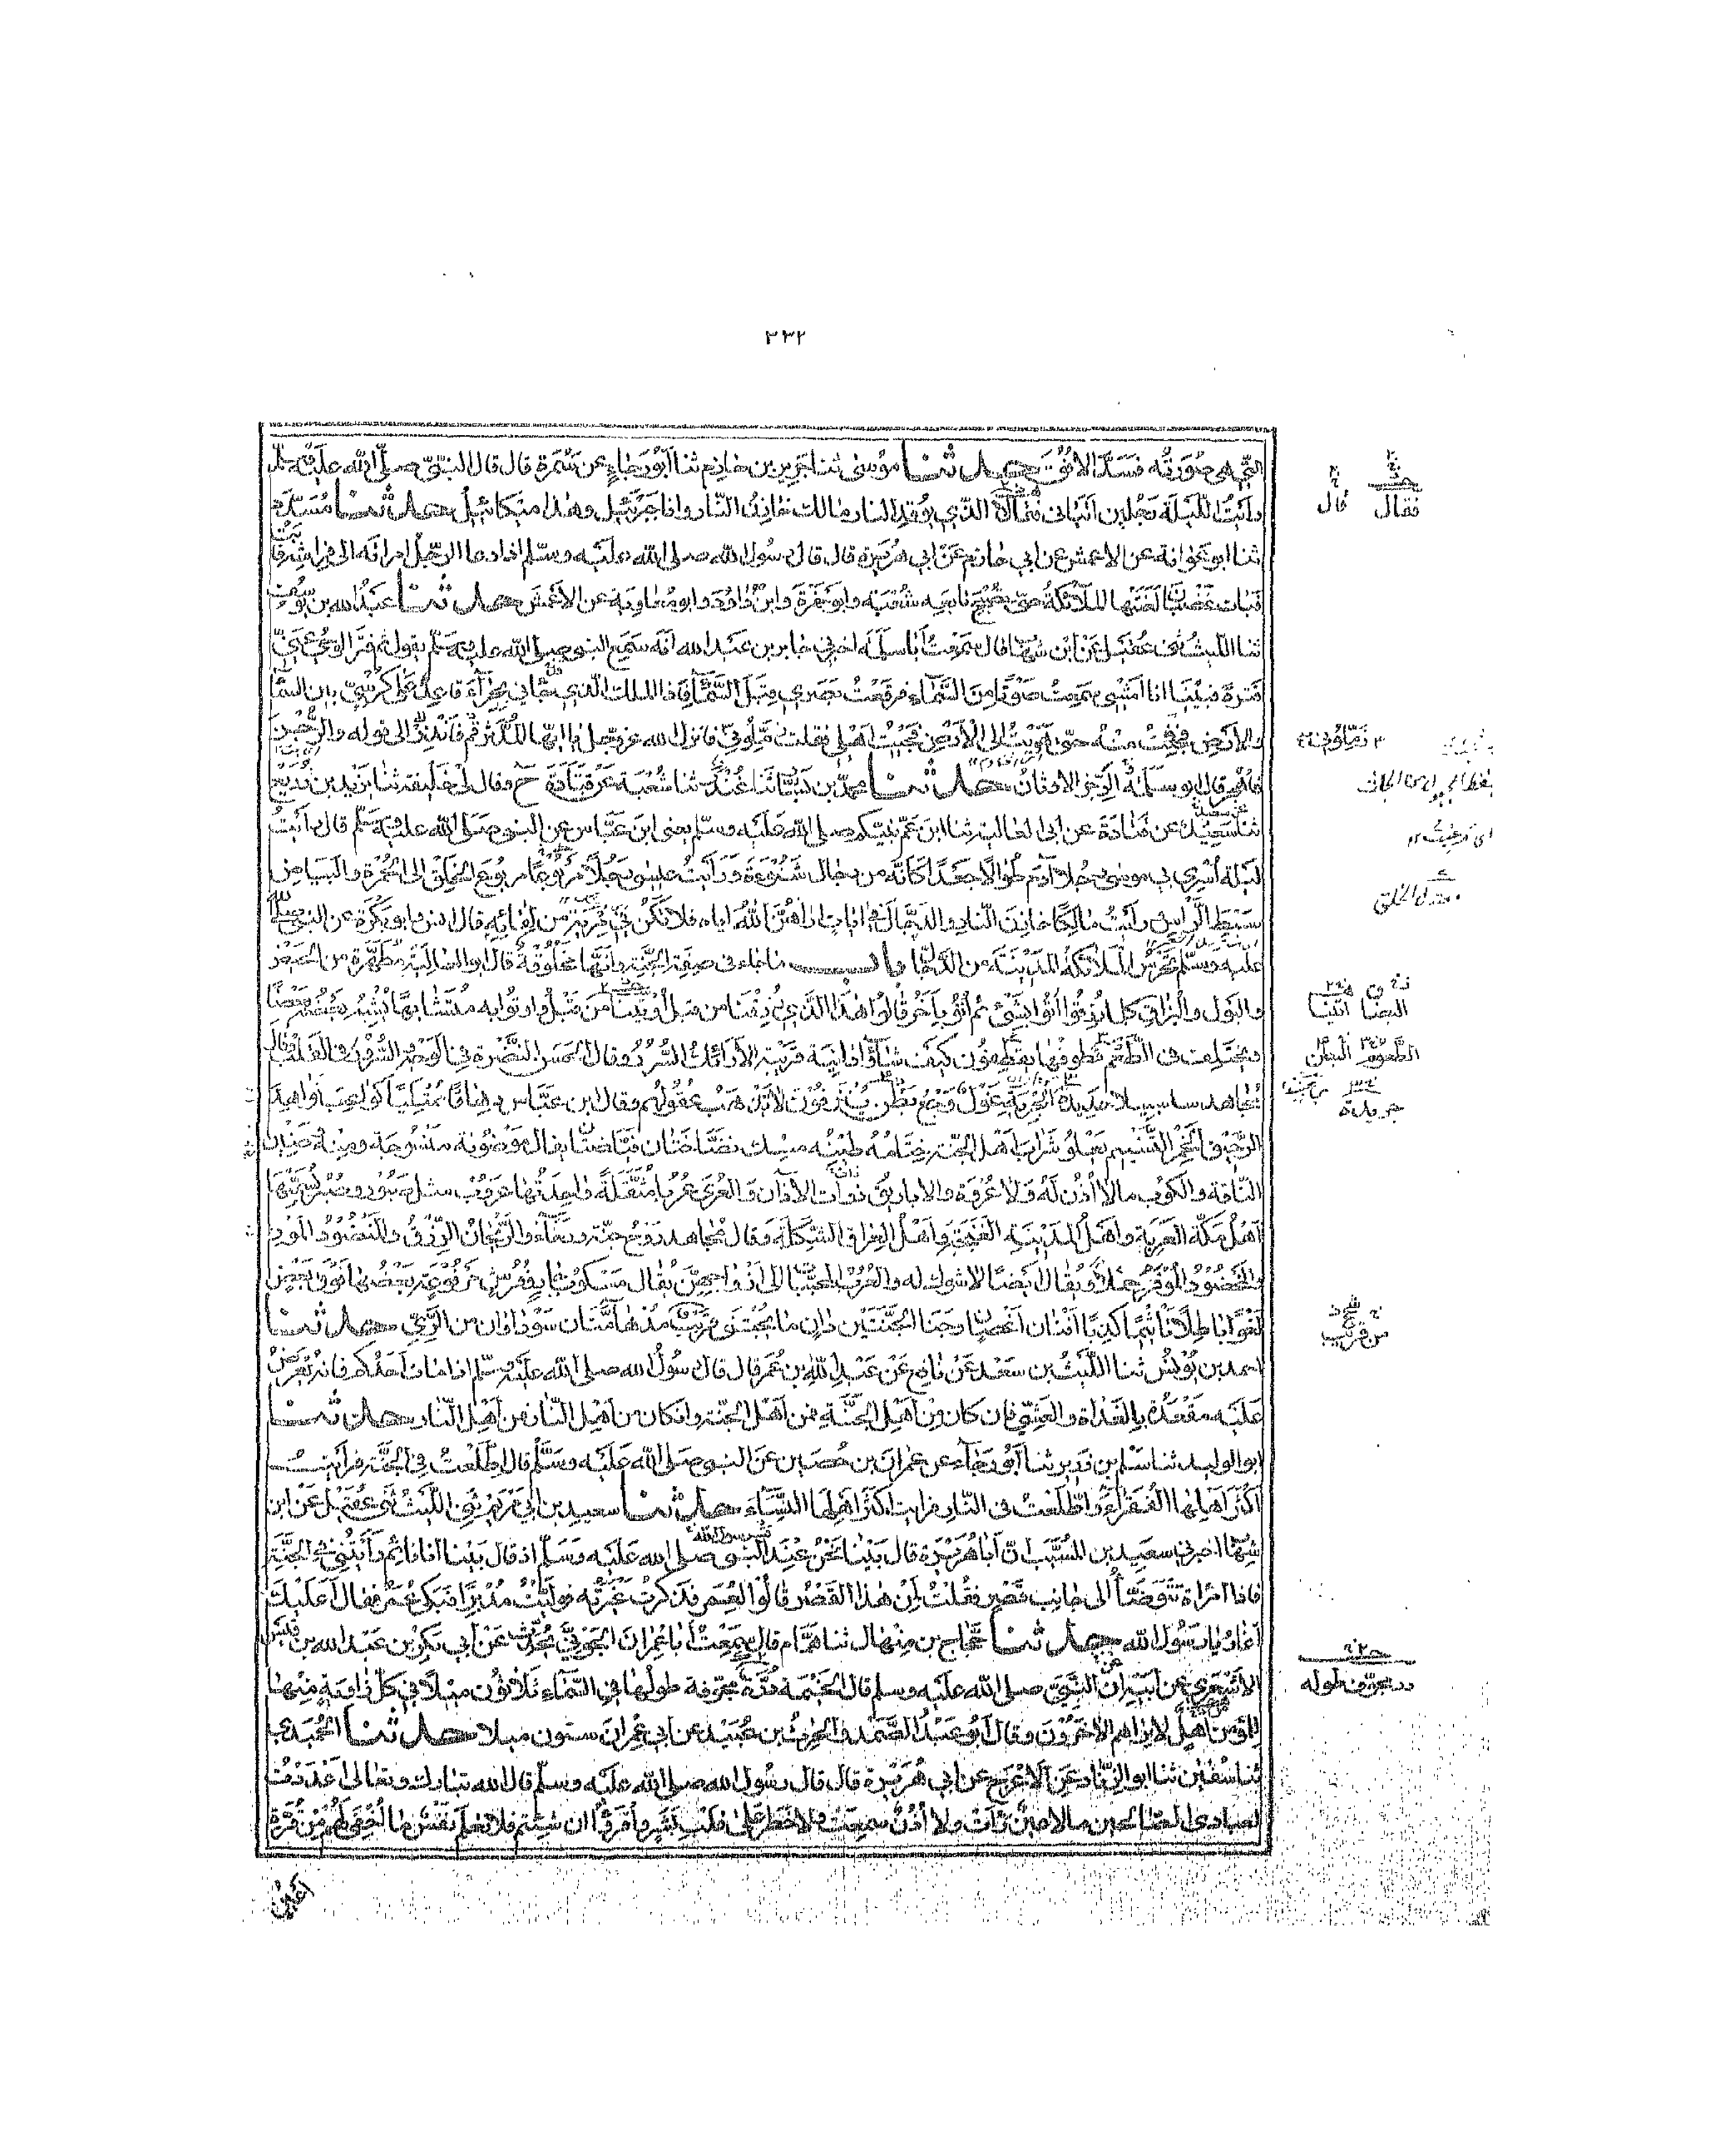 ٣٣٢
التي هي صورته فسد الافق حدثنا موسى ثنا جرير بن حازم ثنا ابو رجاء عن سمرة قال قال النبي صلى الله عليه وسلم
رأيت الليلة رجلين اتياني فقالا الذي يوقد النار مالك خازن النار وانا جبرئيل وهذا ميكائيل حدثنا مسدد
ثنا ابو عوانة عن الاعمش عن ابي حازم عن ابي هريرة قال قال رسول الله صلى الله عليه وسلم اذا دعا الرجل امرأته الى فراشه
فبات غضبان لعنتها الملائكة حتى تصبح تابعه شعبة وابو حمزة وابن داود وابو معاوية عن الاعمش حدثنا عبد الله بن يوسف
ثنا الليث ثني عقيل عن ابن شهاب قال سمعت ابا سلمة اخبرني جابر بن عبد الله انه سمع النبي صلى الله عليه وسلم يقول ثم فتر الوحي عني
فترة فبينا انا امشي سمعت صوتا من السماء فرفعت بصري قبل السماء فاذا الملك الذي جاءني بحراء قاعد على كرسي بين السماء
والارض فجئثت منه حتى هويت الى الارض فجئت اهلي فقلت زملوني فانزل الله عز وجل يا ايها المدثر قم فانذر الى قوله والرجز
فاهجر قال ابو سلمة الرجز الاوثان حدثنا محمد بن بشار ثنا غندر ثنا شعبة عن قتادة ح وقال لي خليفة ثنا يزيد بن زريع
ثنا سعيد عن قتادة عن ابي العالية ثنا ابن عم نبيكم صلى الله عليه وسلم يعني ابن عباس عن النبي صلى الله عليه وسلم قال رأيت
ليلة اسري بي موسى رجلا آدم طوالا جعدا كانه من رجال شنوءة ورأيت عيسى رجلا مربوعا مربوع الخلق الى الحمرة والبياض
سبط الرأس ورأيت مالكا خازن النار والدجال في آيات اراهن الله اياه فلا تكن في مرية من لقائه قال انس وابو بكرة عن النبي صلى الله
عليه وسلم تحرس الملائكة المدينة من الدجال باب ما جاء في صفة الجنة وانها مخلوقة قال ابو العالية مطهرة من الحيض
والبول والبزاق كلما رزقوا اتوا بشيء ثم اتوا بآخر قالوا هذا الذي رزقنا من قبل اوتينا من قبل واوتوا به متشابها يشبه بعضه بعضا
ويختلف في الطعم قطوفها يقطفون كيف شاؤا دانية قريبة الارائك السرر وقال الحسن النضرة في الوجوه والسرور في القلب وقال
مجاهد سلسبيلا حديدة الجرية غول وجع بطن ينزفون لا تذهب عقولهم وقال ابن عباس دهاقا ممتليا كواعب نواهد
الرحيق الخمر التسنيم يعلو شراب اهل الجنة ختامه طينه مسك نضاختان فياضتان يقال موضونة منسوجة ومنه وضين
الناقة والكوب ما لا اذن له ولا عروة والاباريق ذوات الآذان والعرى عربا مثقلة واحدتها عروب مثل صبور وصبر يسميها
اهل مكة العربة واهل المدينة الغنجة واهل العراق الشكلة وقال مجاهد روح جنة ورخاء والريحان الرزق والمنضود الموز
والمخضود الموقر حملا ويقال ايضا لا شوك له والعرب المحببات الى ازواجهن يقال مسكوب جار وفرش مرفوعة بعضها فوق بعض
لغوا باطلا تأثيما كذبا افنان اغصان وجنا الجنتين دان ما يجتنى قريب مدهامتان سوداوان من الري حدثنا
احمد بن يونس ثنا الليث بن سعد عن نافع عن عبد الله بن عمر قال قال رسول الله صلى الله عليه وسلم اذا مات احدكم فانه يعرض
عليه مقعده بالغداة والعشي فان كان من اهل الجنة فمن اهل الجنة وان كان من اهل النار فمن اهل النار حدثنا
ابو الوليد ثنا سلم بن زرير ثنا ابو رجاء عن عمران بن حصين عن النبي صلى الله عليه وسلم قال اطلعت في الجنة فرأيت
اكثر اهلها الفقراء واطلعت في النار فرايت اكثر اهلها النساء حدثنا سعيد بن ابي مريم ثني الليث ثني عقيل عن ابن
شهاب اخبرني سعيد بن المسيب ان ابا هريرة قال بينا نحن عند النبي صلى الله عليه وسلم اذ قال بينا انا نائم رأيتني في الجنة
فاذا امرأة تتوضأ الى جانب قصر فقلت لمن هذا القصر قالوا لعمر فذكرت غيرته فوليت مدبرا فبكى عمر فقال اعليك
اغار يا رسول الله حدثنا حجاج بن منهال ثنا همام قال سمعت ابا عمران الجوني يحدث عن ابي بكر بن عبد الله بن قيس
الاشعري عن ابيه ان النبي صلى الله عليه وسلم قال الخيمة درة مجوفة طولها في السماء ثلاثون ميلا في كل زاوية منها
للمؤمن اهل لا يراهم الآخرون وقال ابو عبد الصمد والحرث بن عبيد عن ابي عمران ستون ميلا حدثنا الحميدي
ثنا سفين ثنا ابو الزناد عن الاعرج عن ابي هريرة قال قال رسول الله صلى الله عليه وسلم قال الله تبارك وتعالى اعددت
لعبادي الصالحين ما لا عين رأت ولا اذن سمعت ولا خطر على قلب بشر واقرؤا ان شئتم فلا تعلم نفس ما اخفي لهم من قرة
اعين
فقال قال
زملوني
اتينا
جريدة
من قريب
در مجوف طوله